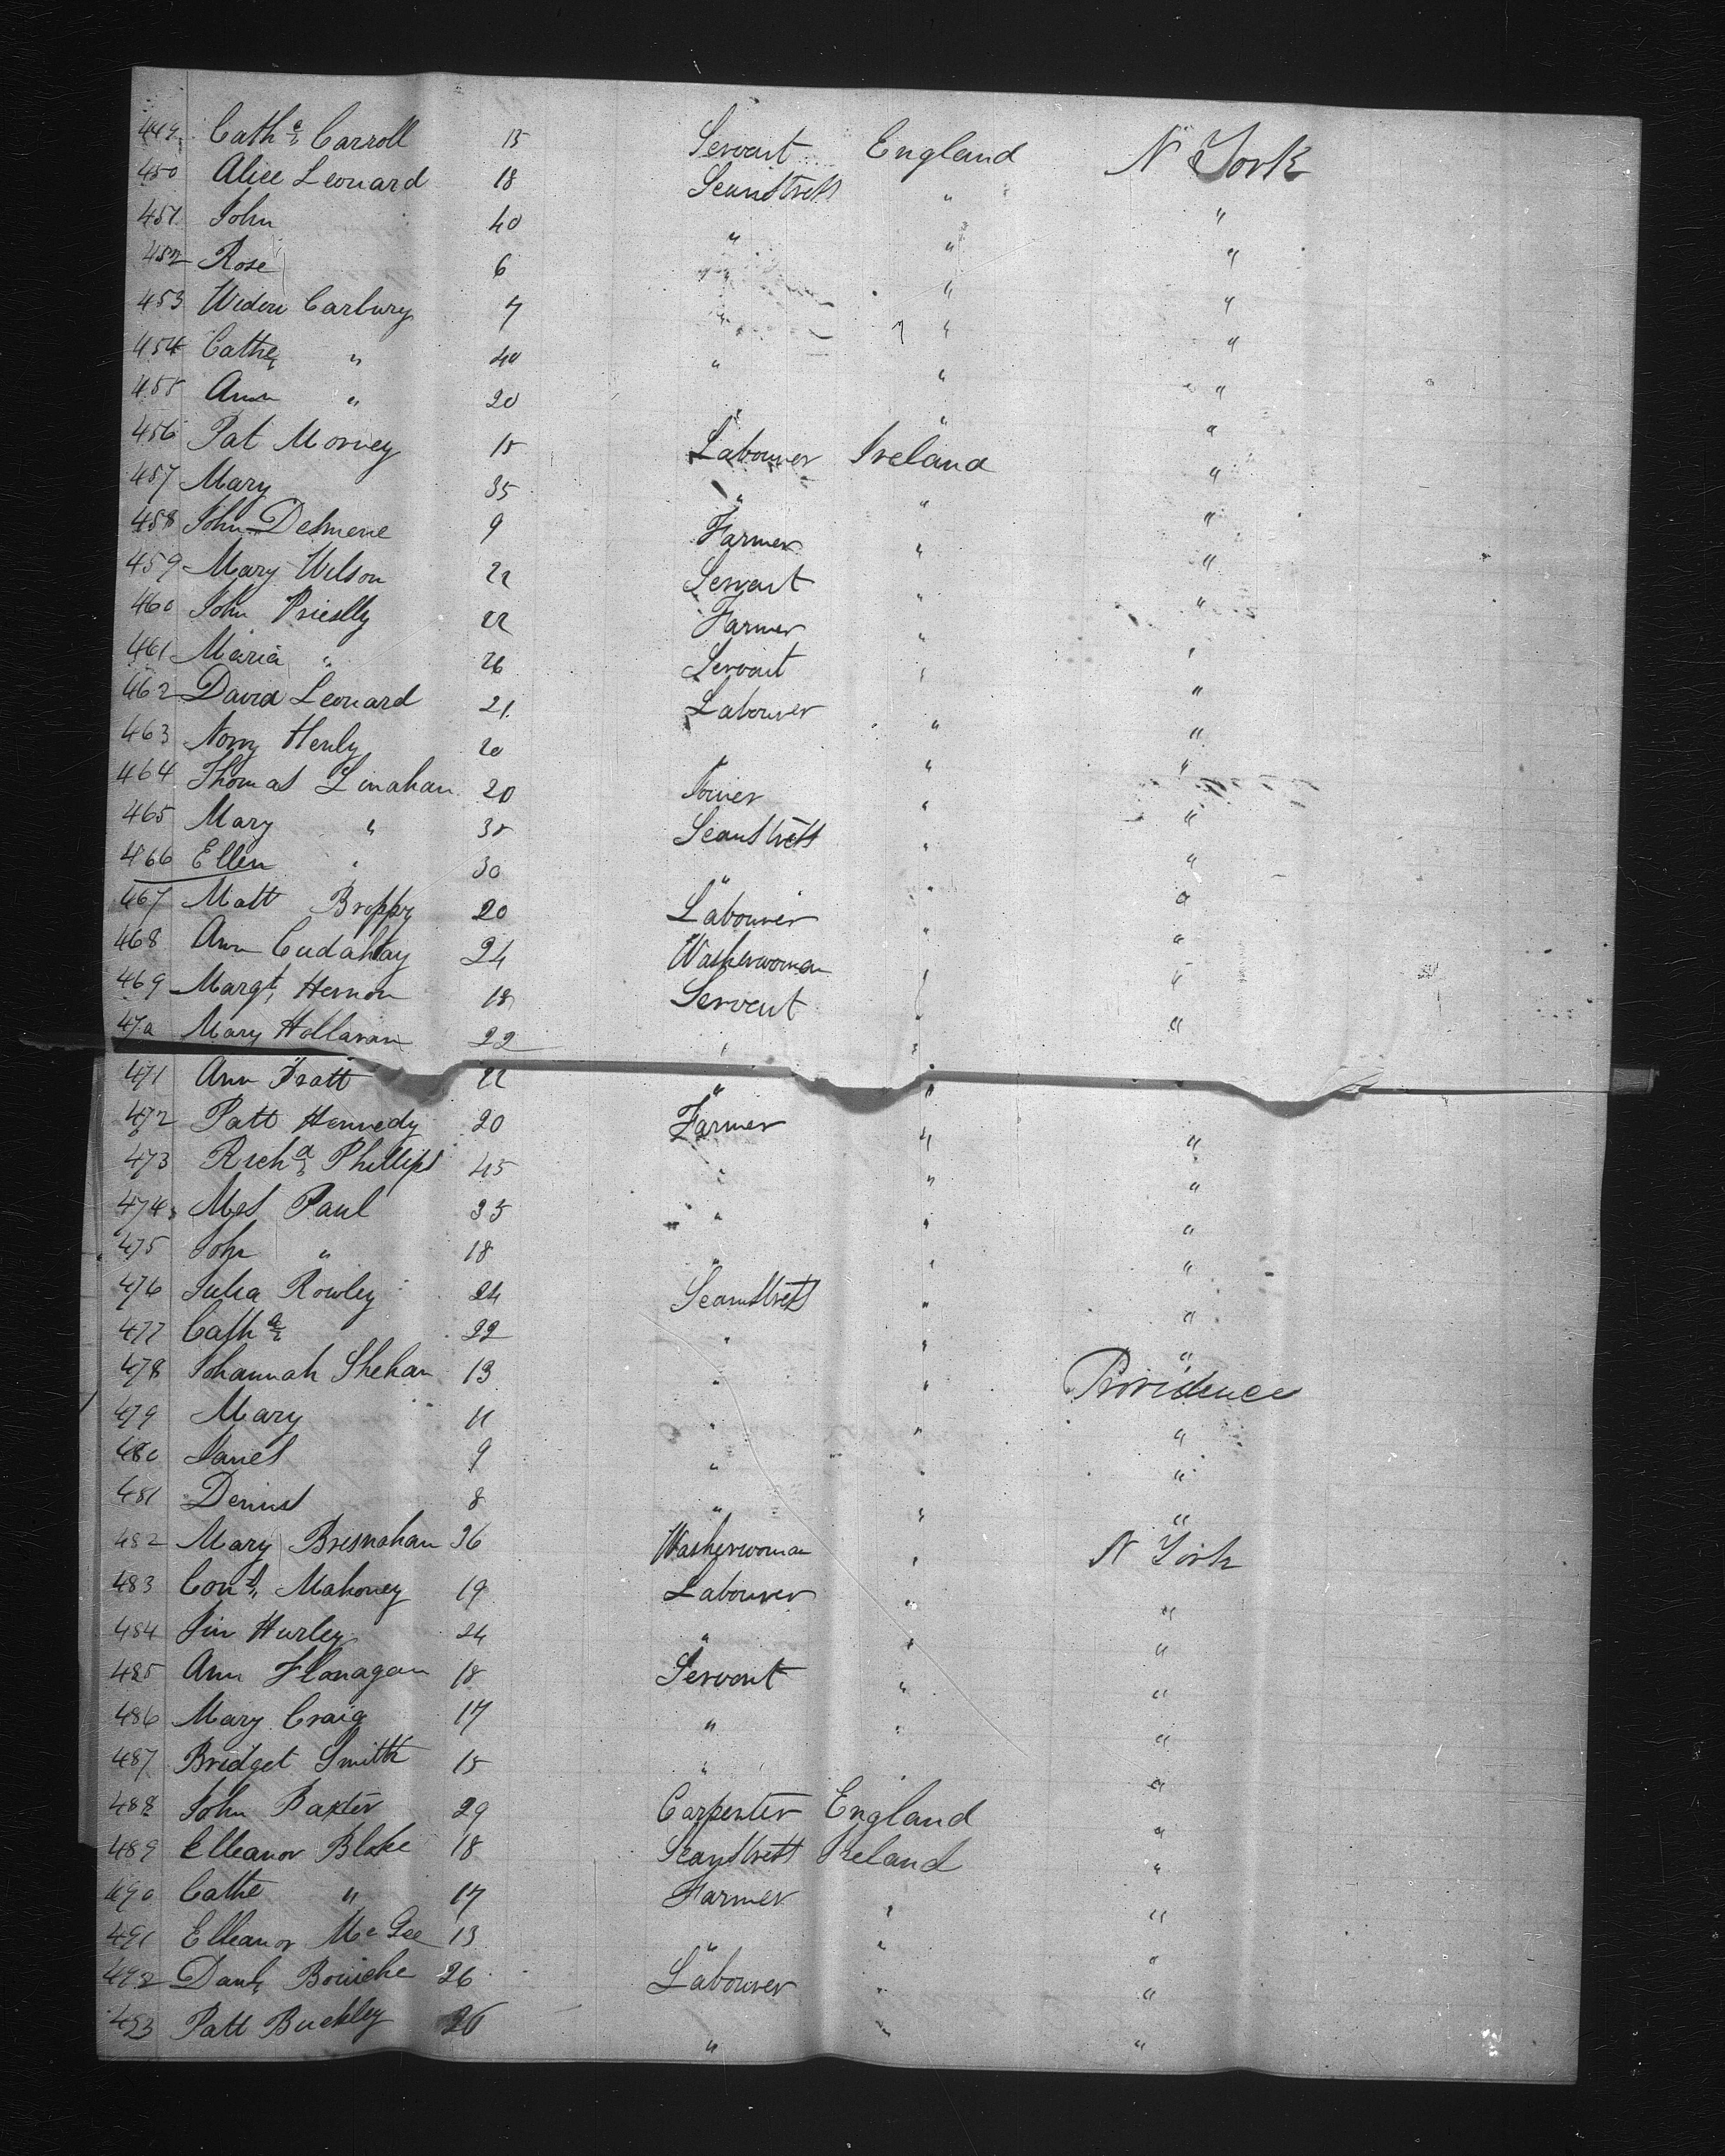 449 Cathe Carroll 15 Servant England N York
450 Alice Leonard 18 Seamstress " "
451 John 40 " " "
452 Rose 6 " " "
453 Carbury 7 " " "
454 Cathe " 40 " " "
455 Ann " 20 " " "
456 Pat Morney 15 Labourer Ireland "
457 Mary 35 " " "
458 John Desmene 9 Farmer " "
459 Mary Wilson 22 Servant " "
460 John Priestly 22 Farmer " "
461 Maria " 26 Servant " "
462 David Leonard 21 Labourer " "
463 Nory Henly 20 " "
464 Thomas Linahan 20 Joiner " "
465 Mary " 30 Seamstress " "
466 Ellen " 30 " " "
467 Matt Broppy 20 Labourer " "
468 Ann Cudahay 24 Washerwoman " "
469 Margt Hernon 18 Servant " "
470 Mary Hollaran 22 " "
471 Ann Pratt 22 " "
472 Patt Kennedy 20 Farmer " "
473 Richd Phillips 45 " " "
474 Mrs Paul 33 " " "
475 John " 18 " " "
476 Julia Rowley 24 Seamstress " "
477 Cathe 22 " " "
478 Johannah Shehan 13 " " Providence
479 Mary 11 " " "
480 James 9 " " "
481 Dennis 8 " " "
482 Mary Bresnahan 36 Washerwoman " N York
483 Cons Mahoney 19 Labourer " "
484 Jim Hurley 24 " " "
485 Ann Flanagan 18 Servant " "
486 Mary Craig 17 " " "
487 Bridget Smith 15 " "
488 John Baxter 29 Carpenter England "
489 Elleanor Blake 18 Seamstress Ireland "
490 Cathe " 17 Farmer " "
491 Elleanor McGee 13 " " "
492 Danl 26 Labourer " "
493 Patt Buckley 26 " " "